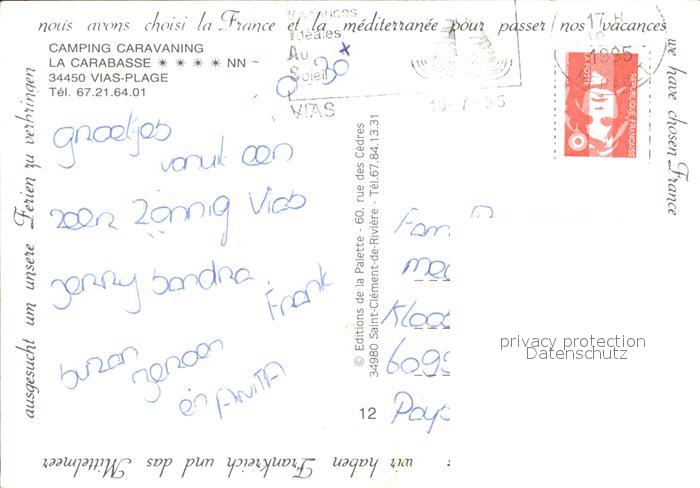 nous avons choisi la France et la méditerranée pour passer nos vacances
we have chosen France
CAMPING CARAVANING
LA CARABASSE ✶ ✶ ✶ ✶ NN
34450 VIAS-PLAGE
Tél. 67.21.64.01
Vacances
Idéales
Au
Soleil
VIAS
18-7-95
17 H
1995
LA POSTE
REPUBLIQUE FRANÇAISE
groetjes
vanuit een
zeer zonnig Vias
Jenny Sandra
Frank
Jeroen
en ANITA
© Editions de la Palette - 60, rue des Cèdres
34980 Saint-Clément-de-Rivière - Tél.67.84.13.31
12
Fam
Kloos
6095
Pays
privacy protection
Datenschutz
wir haben Frankreich und das Mittelmeer
ausgesucht um unsere Ferien zu verbringen